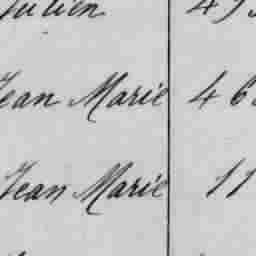 Julien
Jean Marie 46
Jean Marie 11